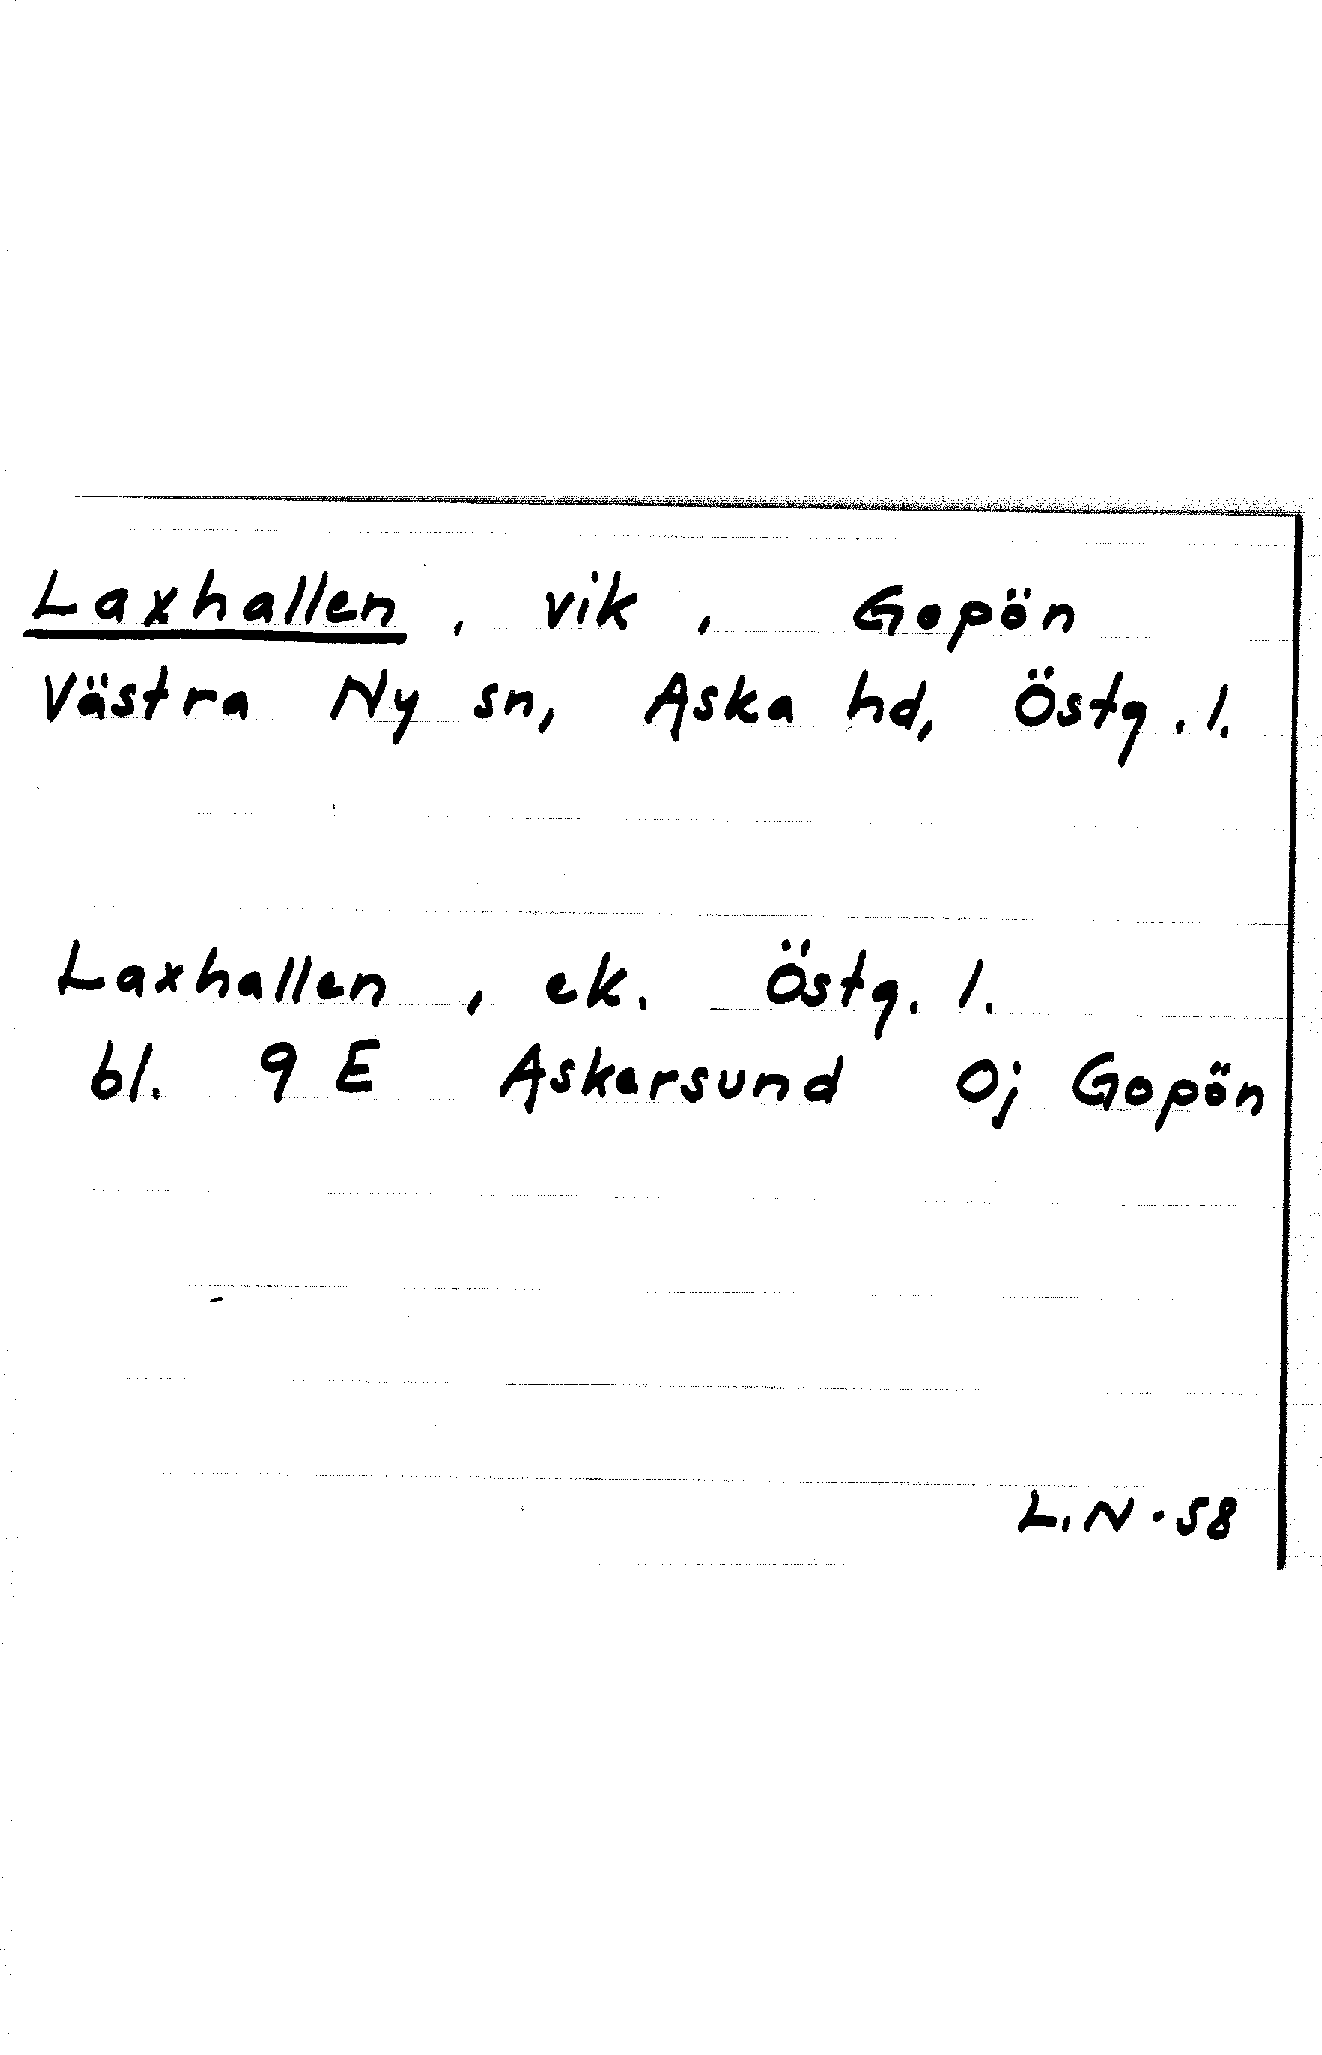 Laxhallen, vik, Gopön
Västra Ny sn, Aska hd, Östg. l.
Laxhallen, ek. Östg. l.
bl. 9 E Askersund 0j Gopön
L.N. 58